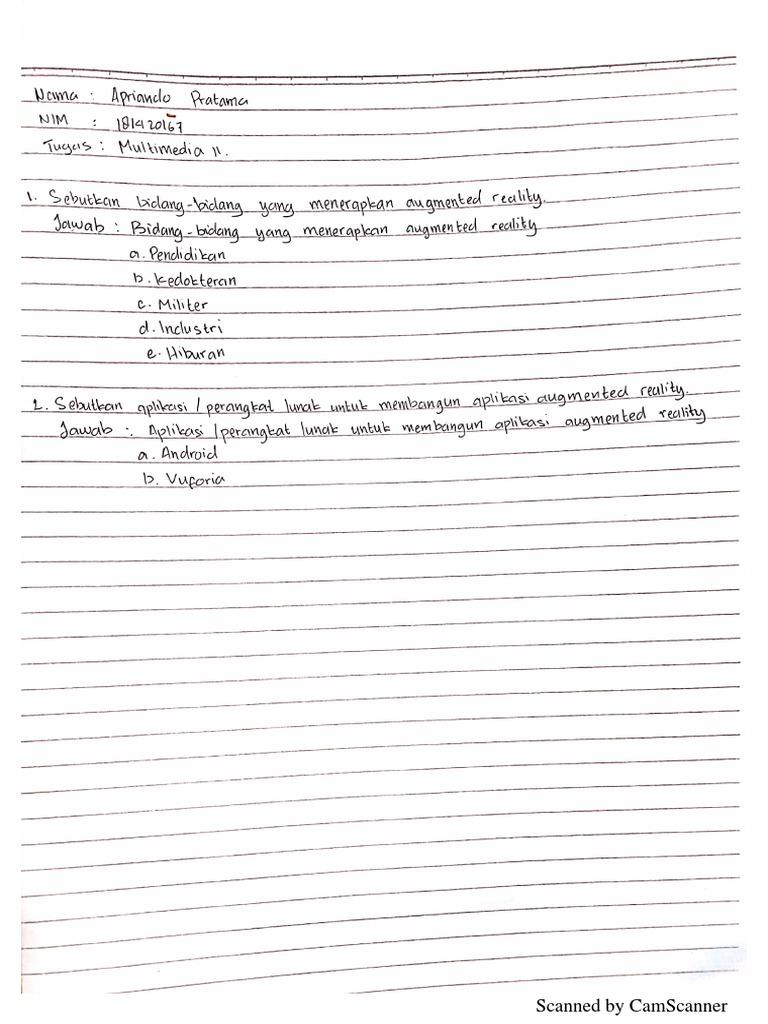 Nama : Apriando Pratama
NIM : 181420167
Tugas : Multimedia II.
1. Sebutkan bidang-bidang yang menerapkan augmented reality.
Jawab : Bidang-bidang yang menerapkan augmented reality
a. Pendidikan
b. Kedokteran
c. Militer
d. Industri
e. Hiburan
2. Sebutkan aplikasi / perangkat lunak untuk membangun aplikasi augmented reality.
Jawab : Aplikasi / perangkat lunak untuk membangun aplikasi augmented reality
a. Android
b. Vuforia
Scanned by CamScanner